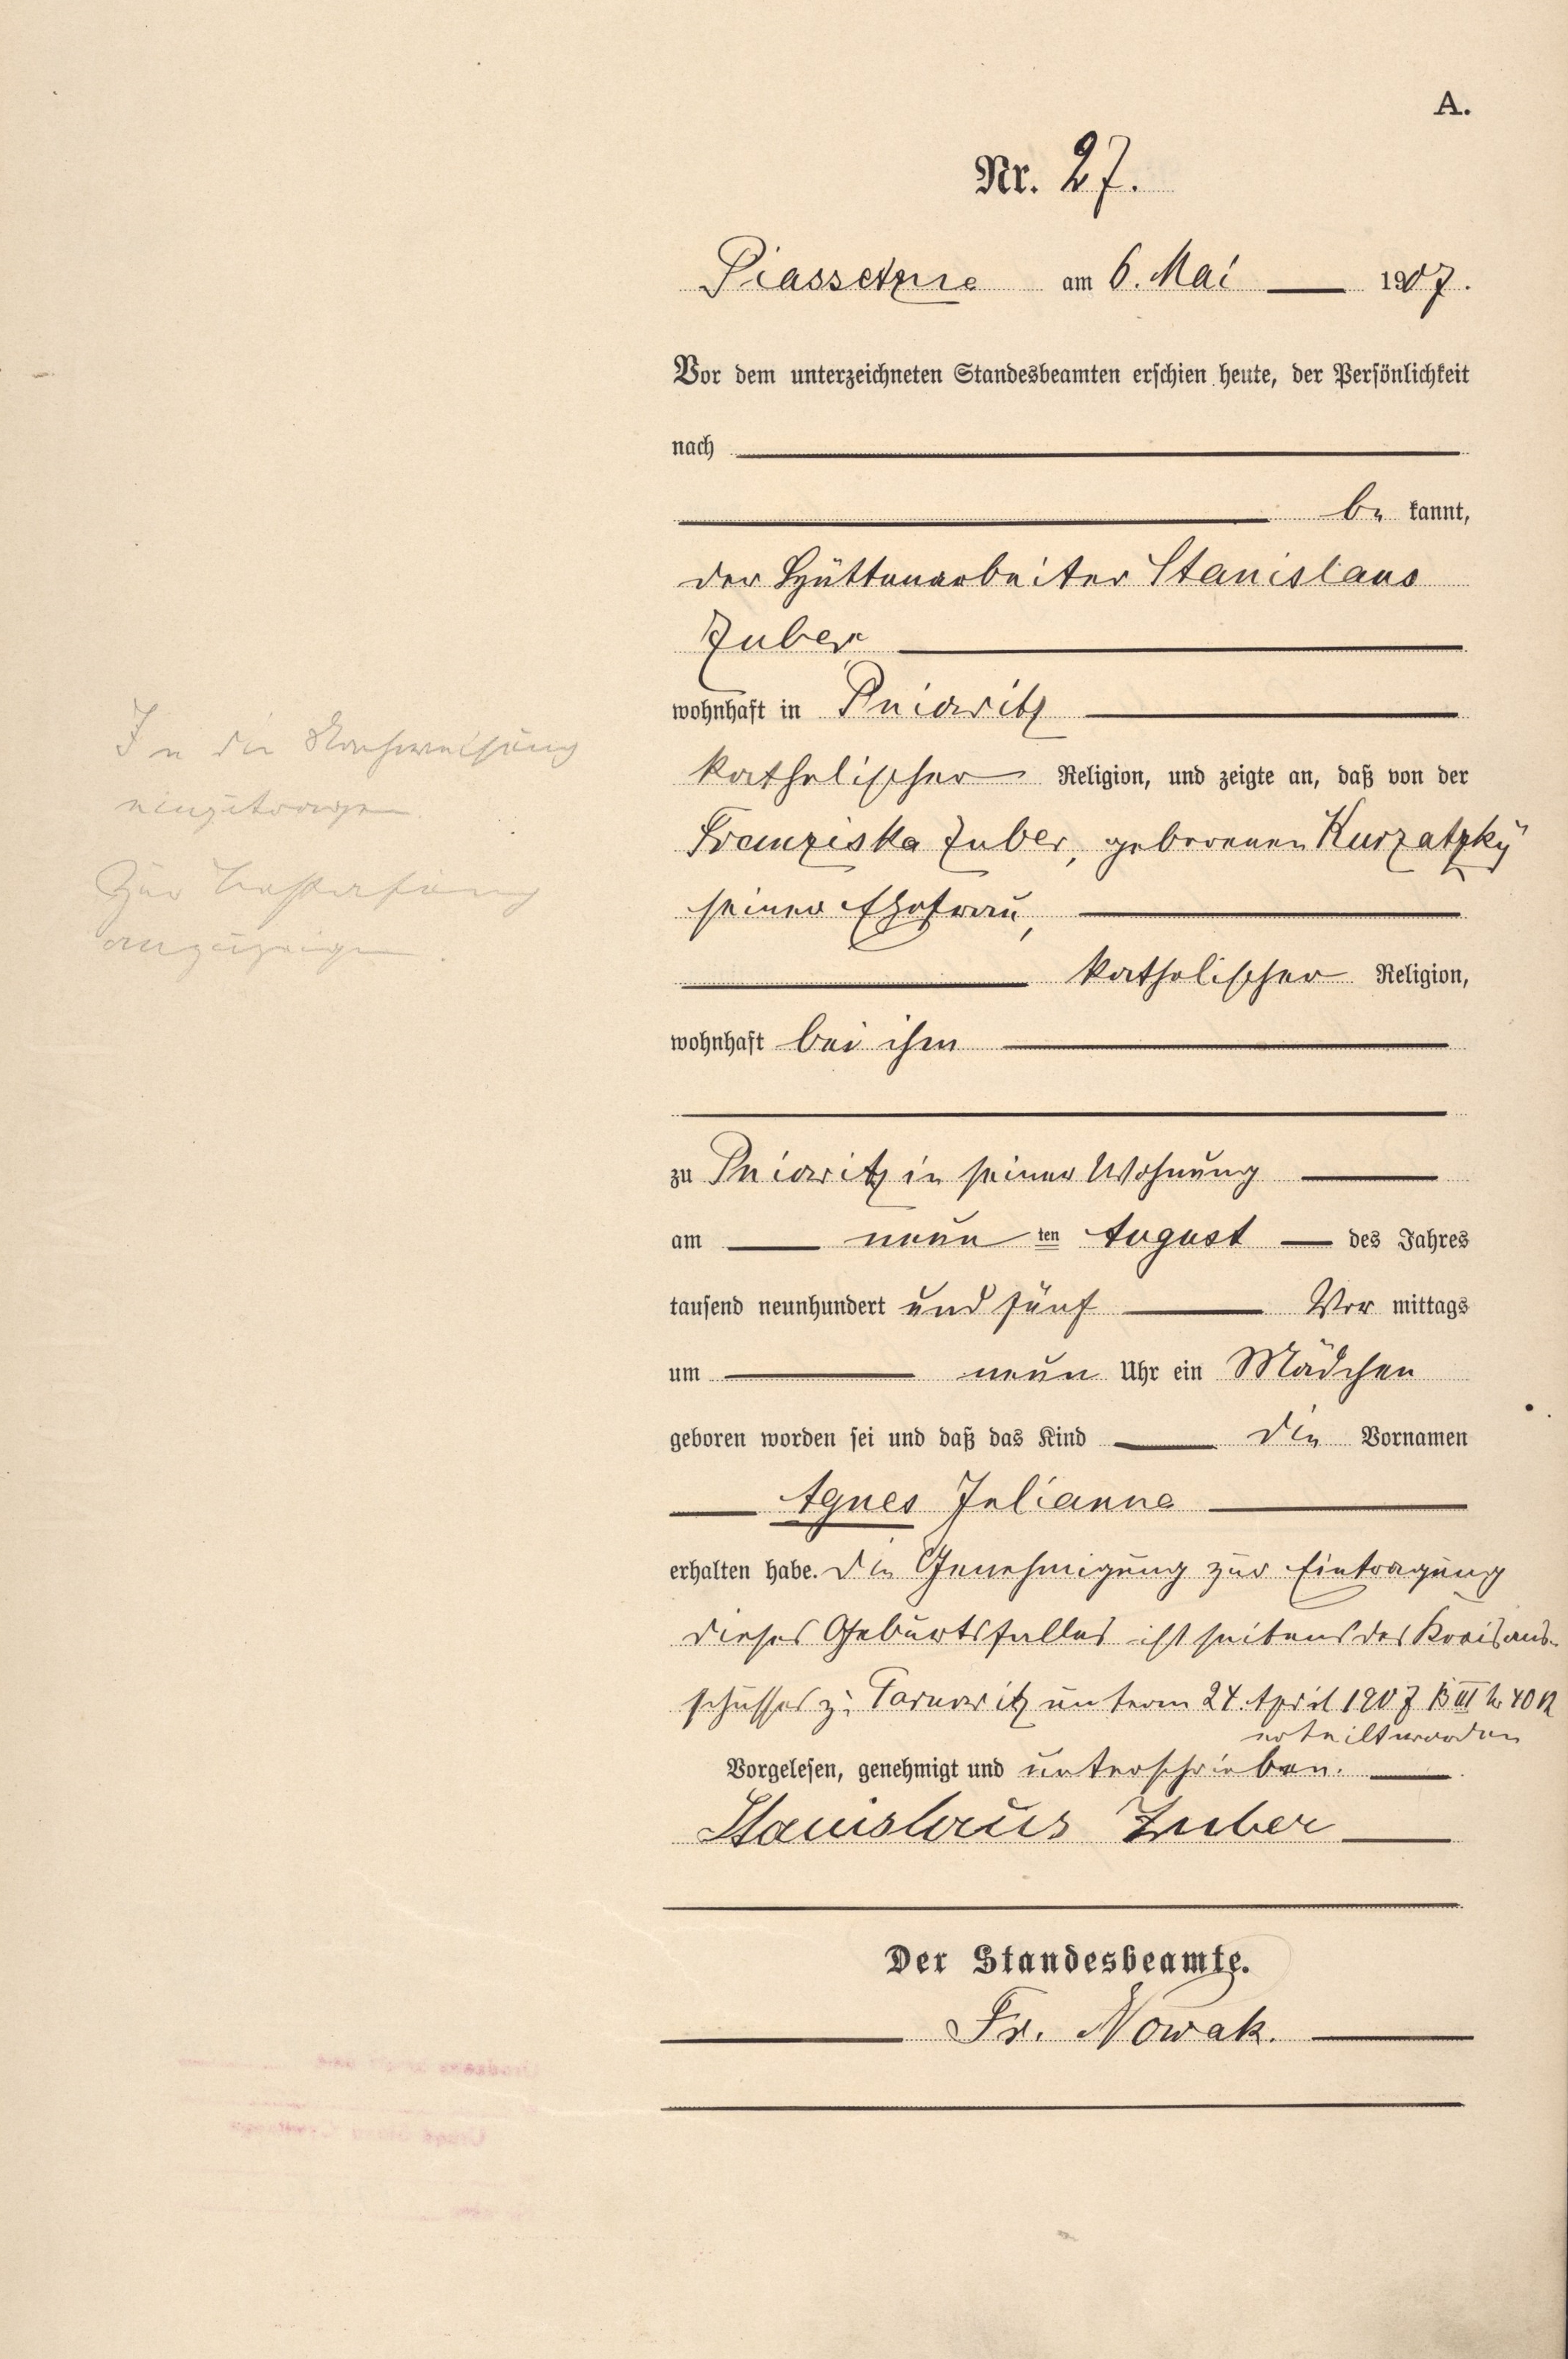 A.
Nr. 27.
Piassetzna am 6. Mai 1907.
Vor dem unterzeichneten Standesbeamten erschien heute, der Persönlichkeit
nach
be kannt,
der Hüttenarbeiter Stanislaus
Zuber
wohnhaft in Pniowitz
katholischer Religion, und zeigte an, daß von der
Franziska Zuber, geborenen Kurzatzky
seiner Ehefrau,
katholischer Religion,
wohnhaft bei ihm
zu Pniowitz in seiner Wohnung
am neun ten August des Jahres
tausend neunhundert und fünf Vor mittags
um neun Uhr ein Mädchen
geboren worden sei und daß das Kind die Vornamen
Agnes Julianna
erhalten habe. Die Genehmigung zur Eintragung
dieses Geburtsfalles ist seitens des Kreisaus-
schusses zu Tarnowitz unterm 24. April 1907 B III
erteilt worden
Vorgelesen, genehmigt und unterschrieben.
Stanislaus Zuber
Der Standesbeamte.
Fr. Nowak.
In die Nachweisung
eingetragen
Zur Bestrafung
anzuzeigen.